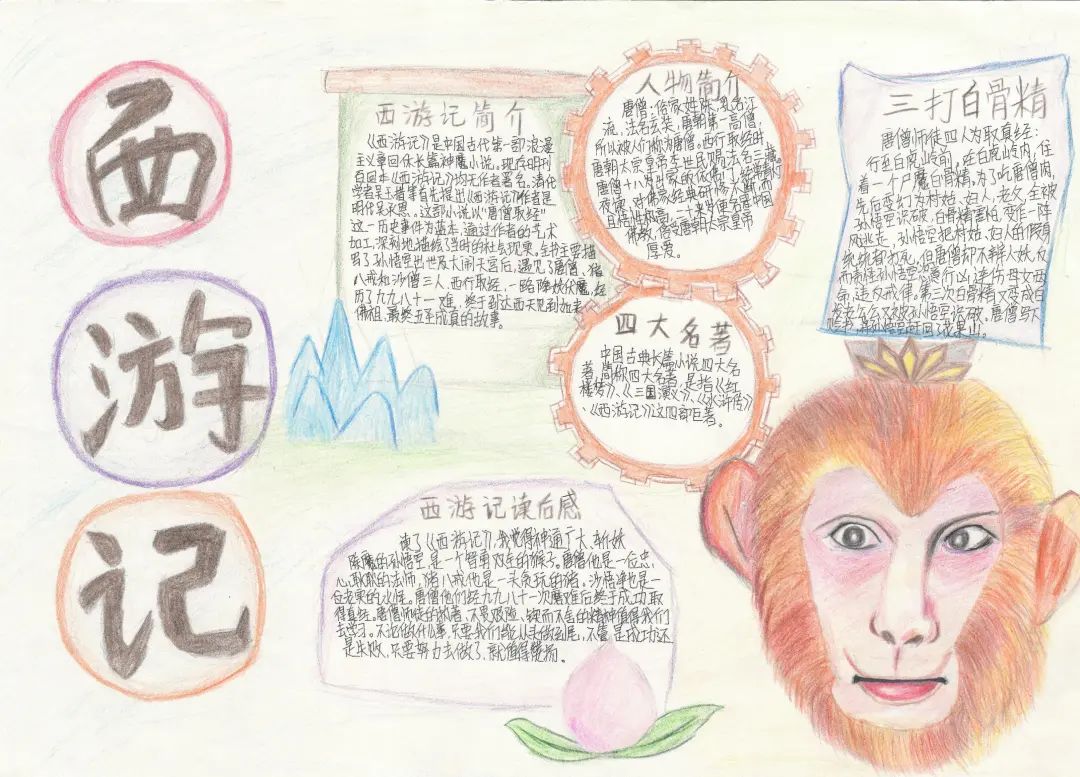 西
游
记
西游记简介
《西游记》是中国古代第一部浪漫
主义章回体长篇神魔小说。现存明刊
百回本《西游记》均无作者署名。清代
学者吴玉搢等首先提出《西游记》作者是
明代吴承恩。这部小说以“唐僧取经”
这一历史事件为蓝本,通过作者的艺术
加工,深刻地描绘了当时的社会现实。全书主要描
写了孙悟空出世及大闹天宫后,遇见了唐僧、猪
八戒和沙僧三人,西行取经,一路降妖伏魔,经
历了九九八十一难,终于到达西天见到如来
佛祖,最终五圣成真的故事。
人物简介
唐僧:俗家姓陈,乳名江
流,法名玄奘,唐朝第一高僧,
所以被人们称为唐僧。西行取经时,
唐朝太宗皇帝李世民赐法名三藏。
唐僧十八岁出家
夜便,对佛家经典研修不断,而
且悟性极高,二十来岁便名冠中国
佛教,倍受唐朝太宗皇帝
厚爱。
四大名著
中国古典长篇小说四大名
著,简称四大名著,是指《红
楼梦》、《三国演义》、《水浒传》
、《西游记》这四部巨著。
三打白骨精
唐僧师徒四人为取真经:
行至白虎岭前,在白虎岭内,住
着一个尸魔白骨精。为了吃唐僧肉,
先后变幻为村姑、妇人,老父,全被
孙悟空识破,白骨精害怕,变作一阵
风逃走,孙悟空把村姑、妇人的假身
统统都打死,但唐僧却不辨人妖,反
而责怪孙悟空恣意行凶,连伤母女两
命,违反戒律。第三次白骨精又变成白
发老公公又被孙悟空识破,唐僧写下
贬书,将孙悟空赶回了花果山。
西游记读后感
读了《西游记》,我觉得神通广大、斩妖
除魔的孙悟空,是一个智勇双全的猴子。唐僧他是一位忠
心耿耿的法师,猪八戒他是一头贪玩的猪。沙悟净也是一
位老实的妖怪。唐僧他们经九九八十一次磨难后终于成功取
得真经。唐僧师徒的执着、不畏艰险、锲而不舍的精神值得我们
去学习。无论做什么事,只要我们能从头做到尾,不管是成功还
是失败,只要努力去做了,就值得赞扬。